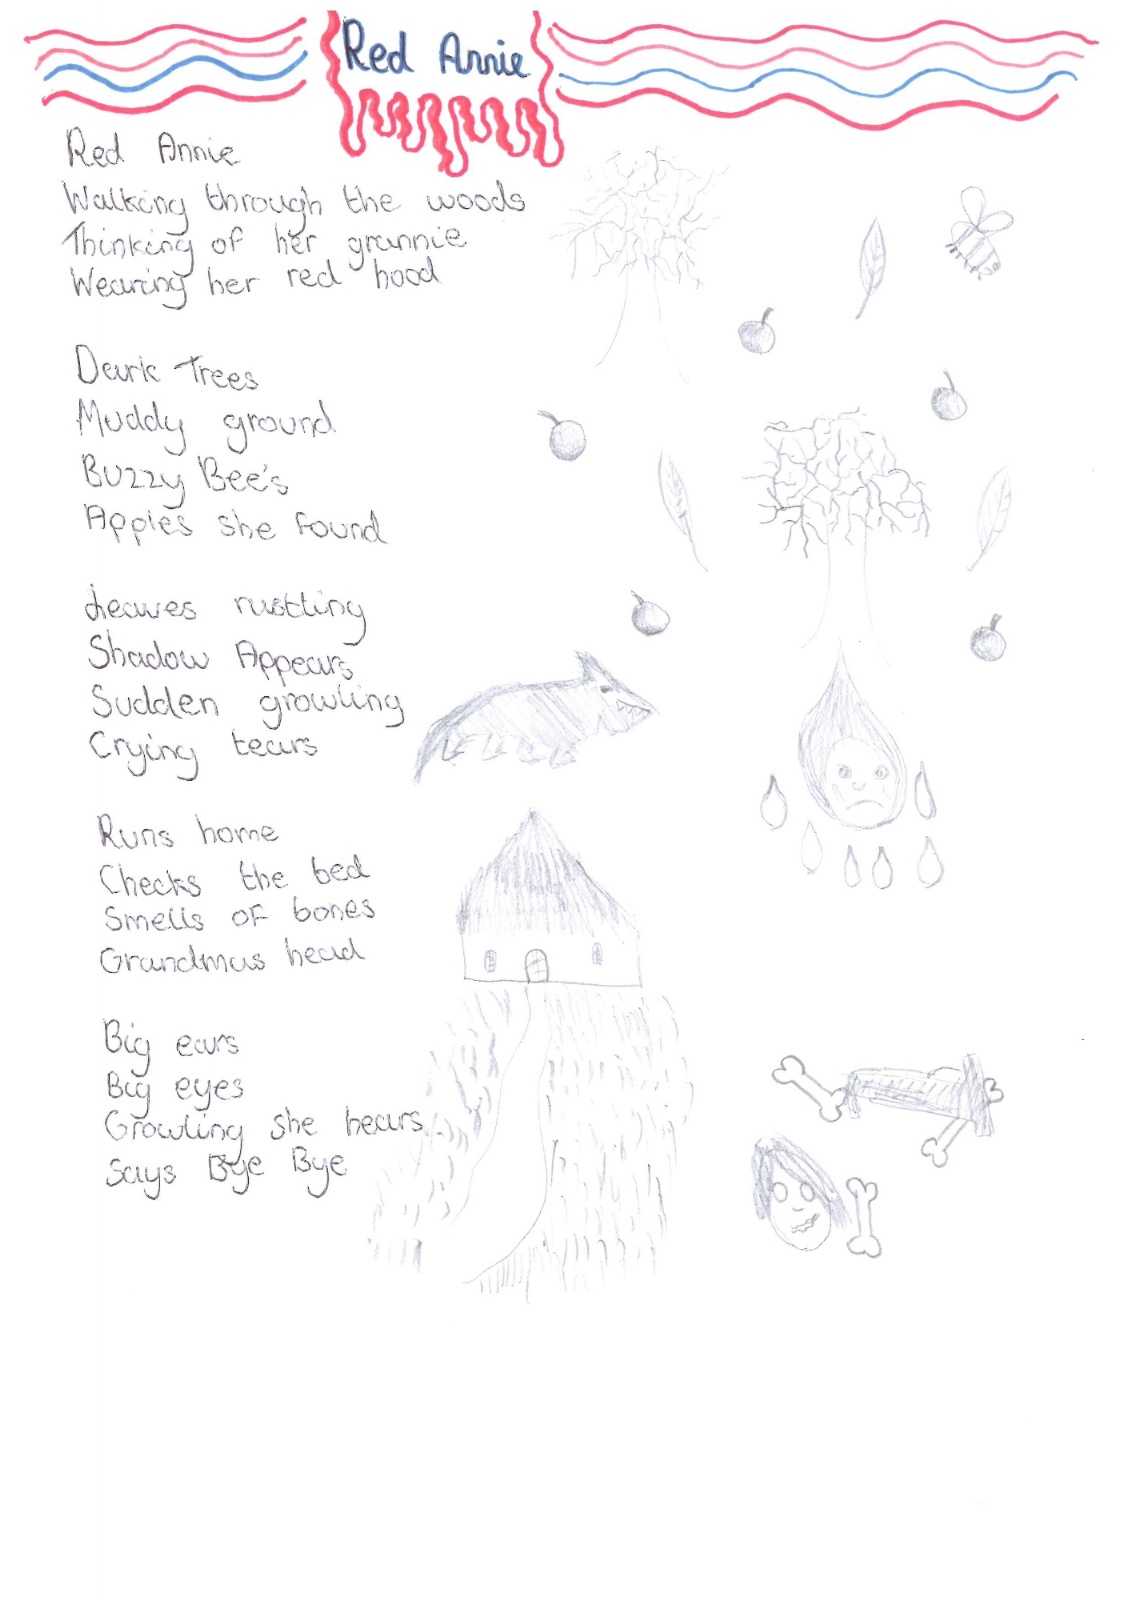 Red Annie
Red Annie
Walking through the woods
Thinking of her grannie
Wearing her red hood
Dark Trees
Muddy ground
Buzzy Bee's
Apples she found
Leaves rustling
Shadow Appears
Sudden growling
Crying tears
Runs home
Checks the bed
Smells of bones
Grandmas head
Big ears
Big eyes
Growling she hears
Says Bye Bye